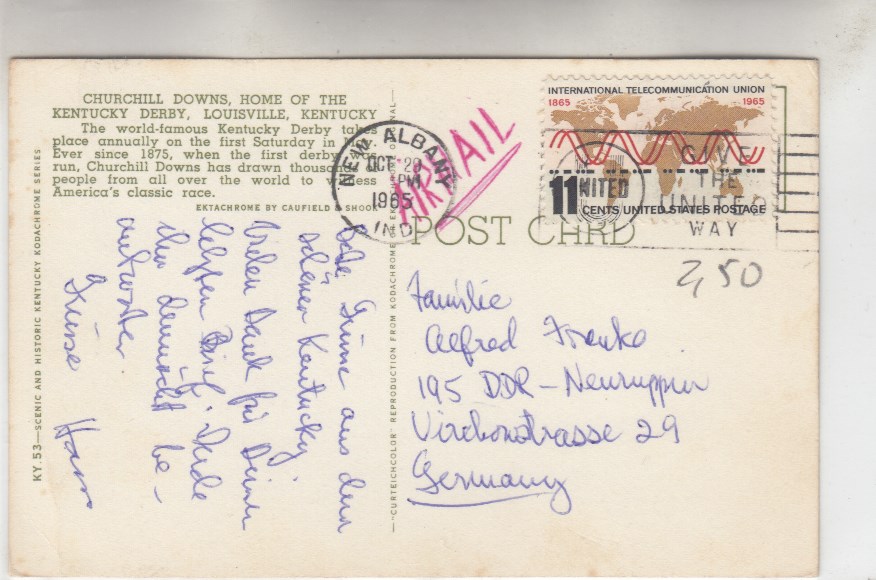 CHURCHILL DOWNS, HOME OF THE
KENTUCKY DERBY, LOUISVILLE, KENTUCKY
The world-famous Kentucky Derby takes
place annually on the first Saturday in May.
Ever since 1875, when the first derby was
run, Churchill Downs has drawn thousands of
people from all over the world to witness
America's classic race.
EKTACHROME BY CAUFIELD & SHOOK
KY. 53—SCENIC AND HISTORIC KENTUCKY KODACHROME SERIES
Grüsse aus dem
schönen Kentucky.
Vielen Dank für Deinen
letzten Brief. Werde
ihn demnächst be-
antworten.
Grüsse Hans
"CURTEICHCOLOR" REPRODUCTION FROM KODACHROME
AIRMAIL
NEW ALBANY
OCT 29
PM
1965
IND.
INTERNATIONAL TELECOMMUNICATION UNION
1865 1965
11 CENTS UNITED STATES POSTAGE
GIVE
THE
UNITED
WAY
UNITED
POST CARD
2,50
Familie
Alfred Franke
195 DDR - Neuruppin
Virchowstrasse 29
Germany